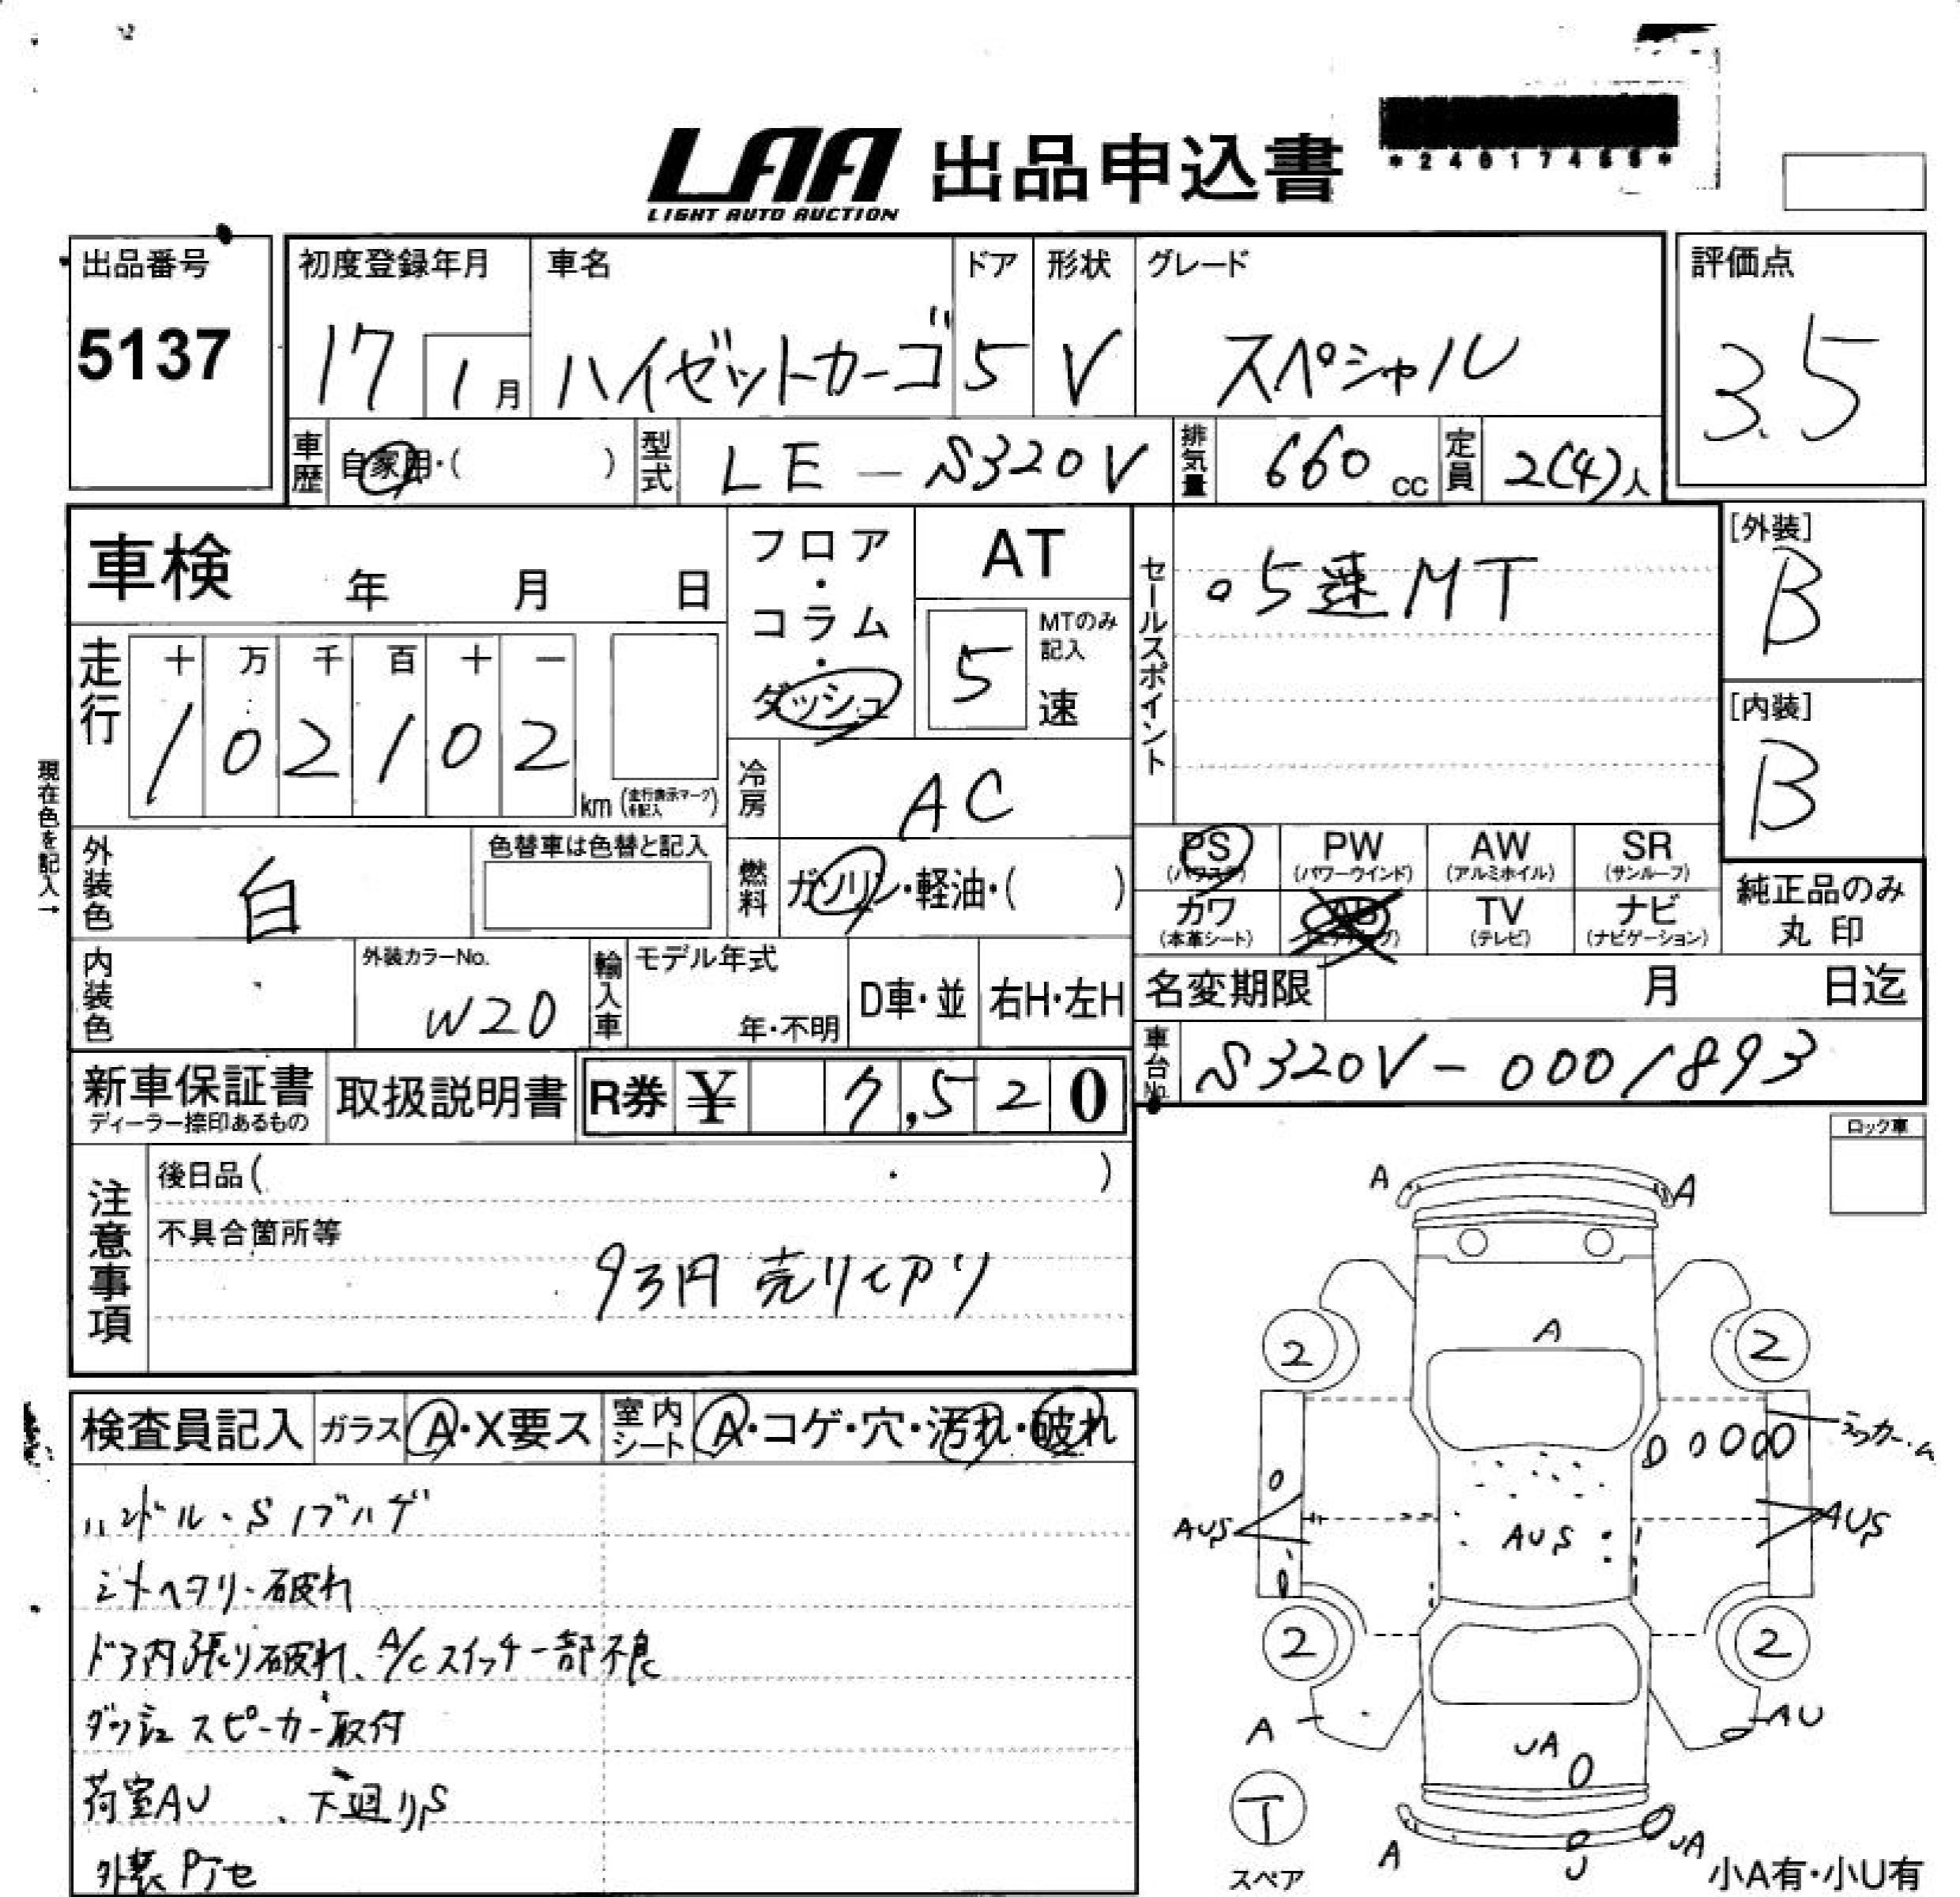 LAA 出品申込書
LIGHT AUTO AUCTION
出品番号
5137
初度登録年月
17
1月
車名
ハイゼットカーゴ
ドア
5
形状
V
グレード
スペシャル
評価点
3.5
車歴
自家用・( )
型式
LE-S320V
排気量
660 cc
定員
2(4)人
車検 年 月 日
フロア・コラム・ダッシュ
AT
MTのみ記入
5 速
セールスポイント
○5速MT
[外装]
B
[内装]
B
走行
十 万 千 百 十 一
1 0 2 1 0 2 km
(走行表示マークを記入)
冷房
AC
現在色を記入→
外装色
白
色替車は色替と記入
燃料
ガソリン・軽油・( )
PS (パワステ)
PW (パワーウインド)
AW (アルミホイル)
SR (サンルーフ)
カワ (本革シート)
AB (エアバッグ)
TV (テレビ)
ナビ (ナビゲーション)
純正品のみ
丸印
内装色
外装カラーNo.
W20
輸入車
モデル年式
年・不明
D車・並
右H・左H
名変期限 月 日迄
車台No.
S320V-0001893
新車保証書
ディーラー捺印あるもの
取扱説明書
R券 ¥ 7,520
ロック車
注意事項
後日品( )
不具合箇所等
9万円 売り切アリ
検査員記入
ガラス
A・X要ス
室内シート
A・コゲ・穴・汚れ・破れ
ハンドル・Sノブハゲ
シートヘタリ・破れ
ドア内張り破れ、A/Cスイッチ一部不良
ダッシュスピーカー取付
荷室AU 、下廻りS
外装Pアセ
A
A
2
A
2
AUS
AUS
AUS
2
2
A
AU
UA
T
スペア
A
U
UA
小A有・小U有